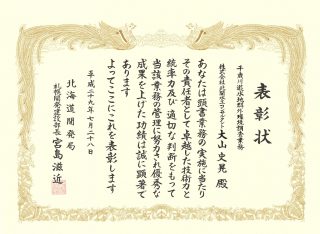 表彰状
千歳川遊水地群外環境調査業務
株式会社北開水工コンサルタント
大山史晃 殿
あなたは頭書業務の実施に当たり
その責任者として卓越した技術力と
統率力及び適切な判断をもって
当該業務の管理に努力され優秀な
成果を上げた功績は誠に顕著で
あります
よってここにこれを表彰します
平成二十九年七月二十八日
北海道開発局
札幌開発建設部長 宮島滋近